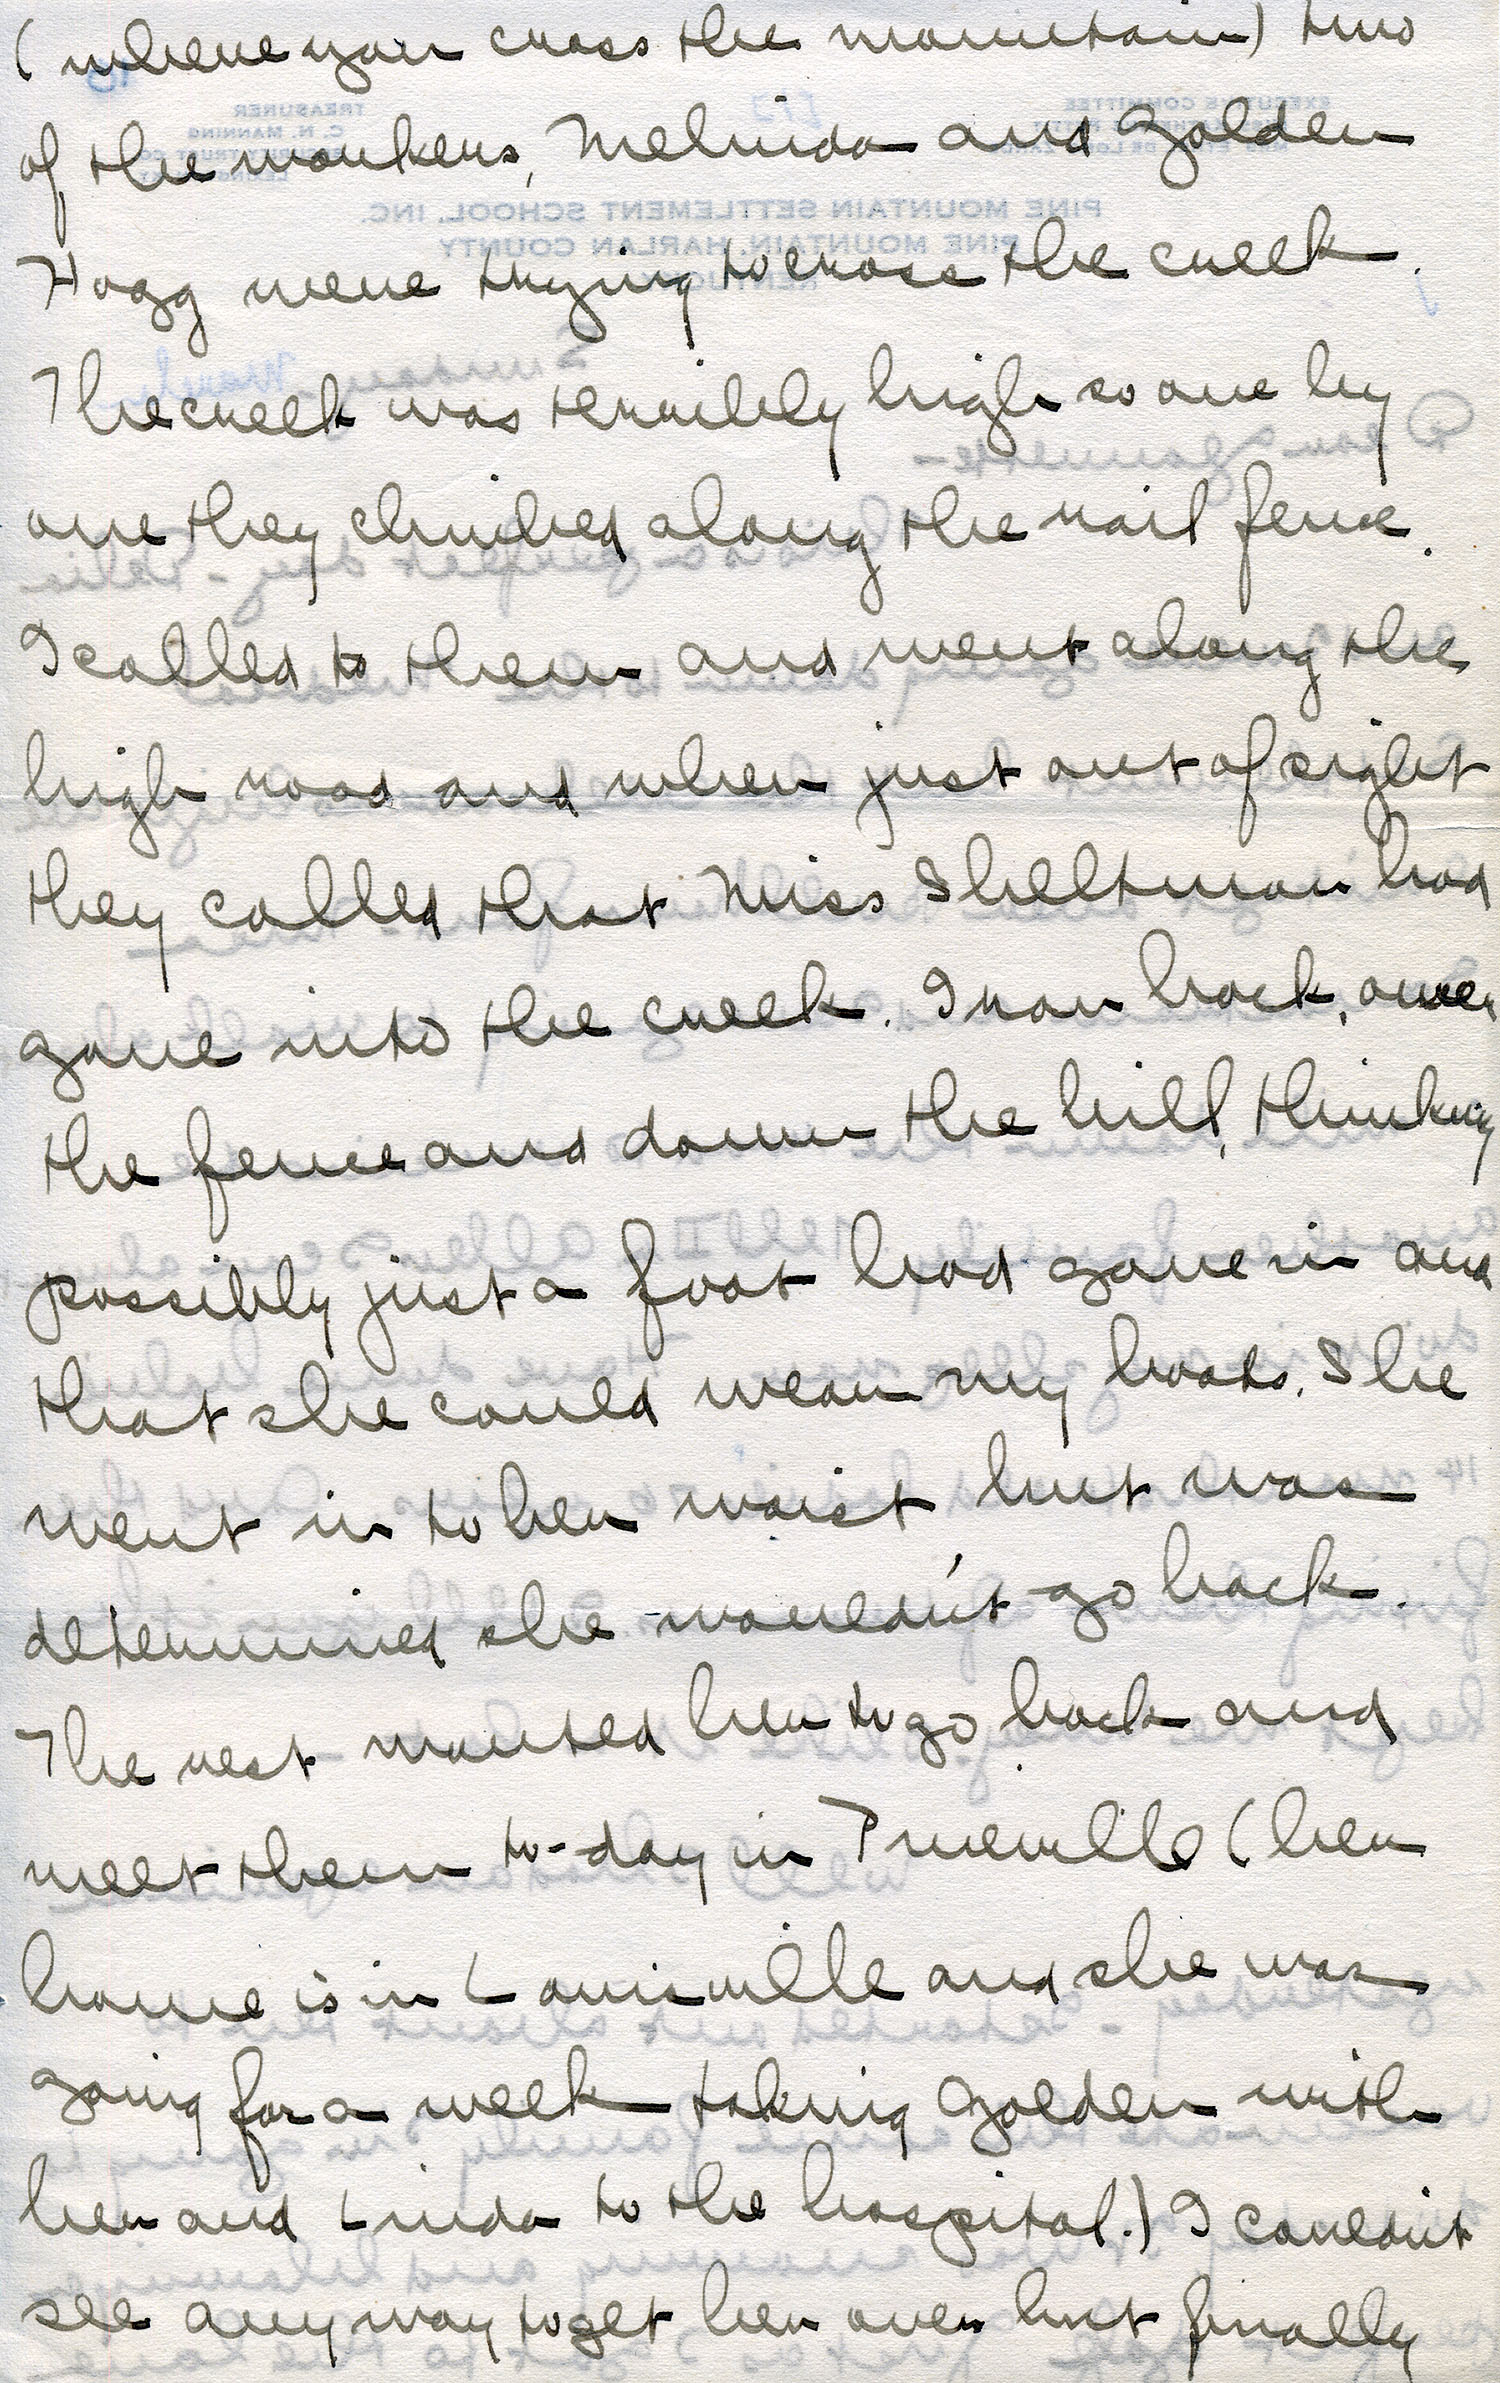 (where you cross the mountain) two
of the workers, Melinda and Golden
Hogg were trying to cross the creek.
The creek was terribly high so one by
one they climbed along the rail fence.
I called to them and went along the
high road and when just out of sight
they called that Miss Sheltman had
gone into the creek. I ran back, over
the fence and down the hill, thinking
possibly just a foot had gone in and
that she could wear my boots. She
went in to her waist but was
determined she wouldn't go back.
The rest wanted her to go back and
meet them to-day in Pineville (her
home is in Louisville and she was
going for a week taking Golden with
her and Linda to the hospital.) I couldn't
see any way to get her over but finally